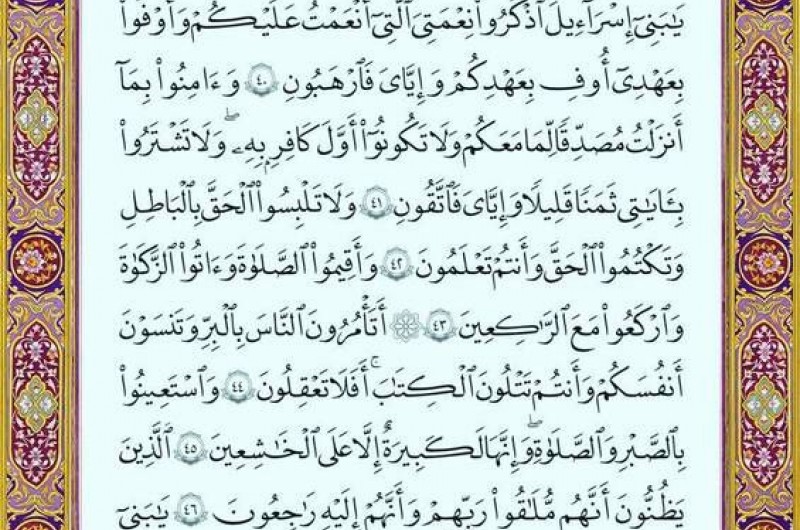 يَٰبَنِىٓ إِسْرَٰٓءِيلَ ٱذْكُرُوا۟ نِعْمَتِىَ ٱلَّتِىٓ أَنْعَمْتُ عَلَيْكُمْ وَأَوْفُوا۟
بِعَهْدِىٓ أُوفِ بِعَهْدِكُمْ وَإِيَّٰىَ فَٱرْهَبُونِ ٤٠ وَءَامِنُوا۟ بِمَآ
أَنزَلْتُ مُصَدِّقًا لِّمَا مَعَكُمْ وَلَا تَكُونُوٓا۟ أَوَّلَ كَافِرٍۭ بِهِۦ ۖ وَلَا تَشْتَرُوا۟
بِـَٔايَٰتِى ثَمَنًا قَلِيلًا وَإِيَّٰىَ فَٱتَّقُونِ ٤١ وَلَا تَلْبِسُوا۟ ٱلْحَقَّ بِٱلْبَٰطِلِ
وَتَكْتُمُوا۟ ٱلْحَقَّ وَأَنتُمْ تَعْلَمُونَ ٤٢ وَأَقِيمُوا۟ ٱلصَّلَوٰةَ وَءَاتُوا۟ ٱلزَّكَوٰةَ
وَٱرْكَعُوا۟ مَعَ ٱلرَّٰكِعِينَ ٤٣ ۞ أَتَأْمُرُونَ ٱلنَّاسَ بِٱلْبِرِّ وَتَنسَوْنَ
أَنفُسَكُمْ وَأَنتُمْ تَتْلُونَ ٱلْكِتَٰبَ ۚ أَفَلَا تَعْقِلُونَ ٤٤ وَٱسْتَعِينُوا۟
بِٱلصَّبْرِ وَٱلصَّلَوٰةِ ۚ وَإِنَّهَا لَكَبِيرَةٌ إِلَّا عَلَى ٱلْخَٰشِعِينَ ٤٥ ٱلَّذِينَ
يَظُنُّونَ أَنَّهُم مُّلَٰقُوا۟ رَبِّهِمْ وَأَنَّهُمْ إِلَيْهِ رَٰجِعُونَ ٤٦ يَٰبَنِىٓ